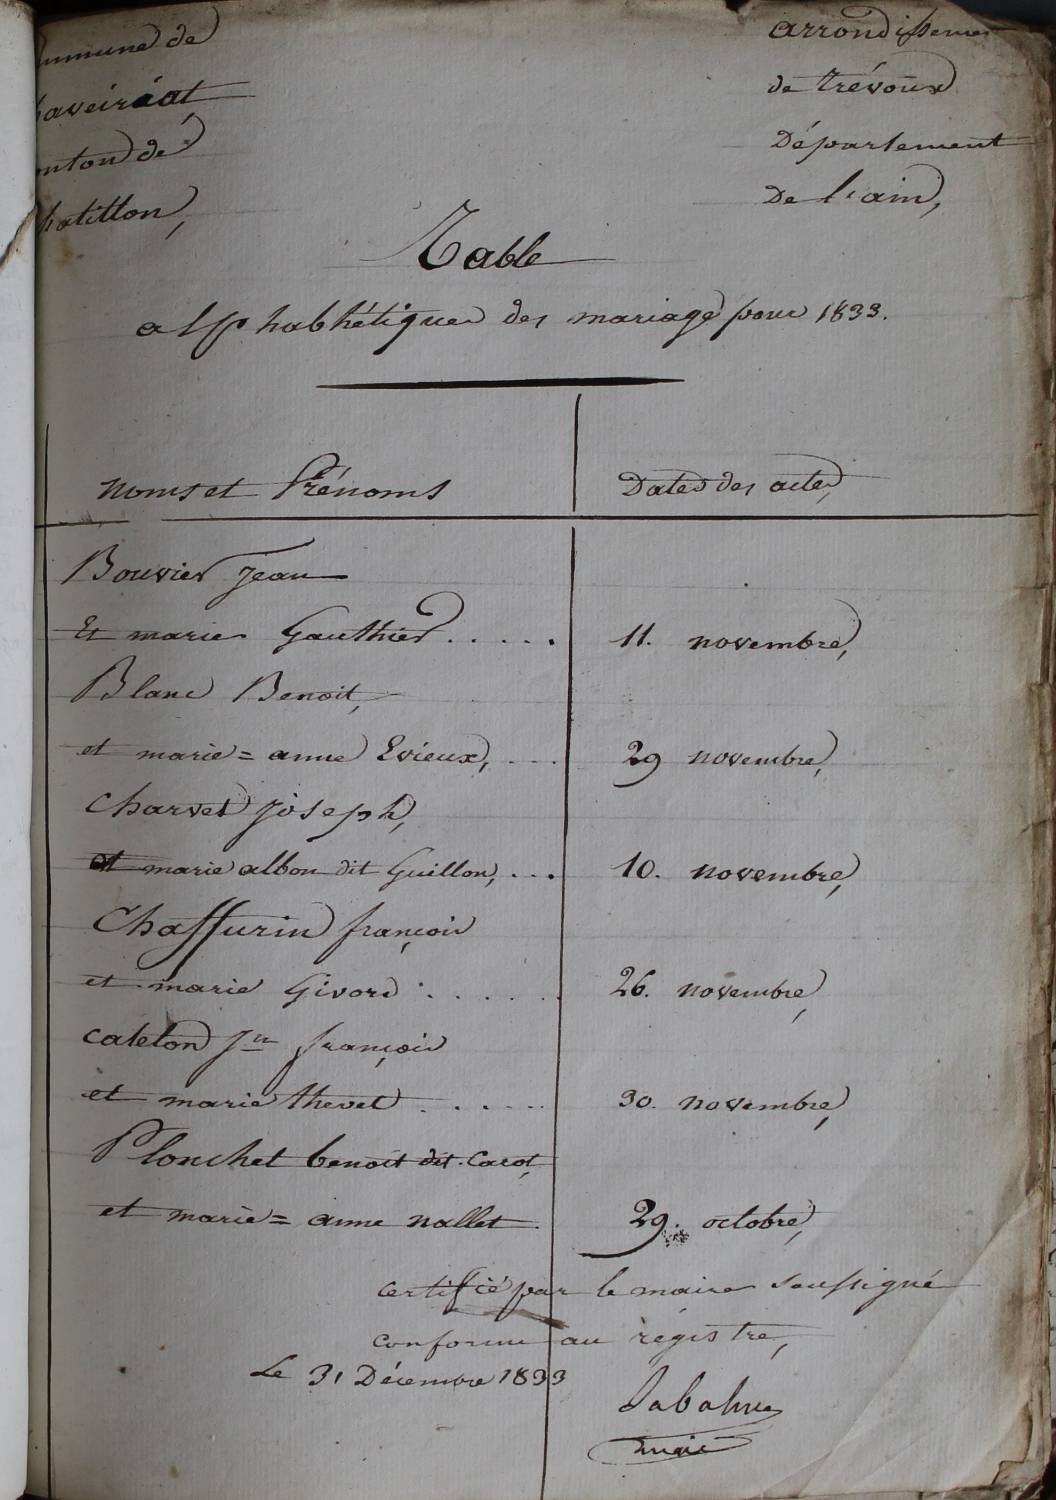 ommune de
aveiriat
anton de
hatillon,
arrondissemen
de trévoux
Département
De l'ain,
Table
alphabhétique des mariage pour 1833.
noms et Prénoms
Dates des actes,
Bouvier Jean
Et marie Gauthier . . . . .
11. novembre,
Blanc Benoit,
et marie = anne Evieux, . . .
29 novembre,
Charvet joseph,
et marie albon dit Guillon, . . .
10. novembre,
Chaffurin françois
et marie Givord . . . . . .
26. novembre,
catelon Jn françois
et marie thevet . . . . . .
30. novembre,
Plonchet benoit dit Carot,
et marie = anne nallet.
29. octobre,
certifié par le maire soussigné
conforme au régistre,
Le 31 Décembre 1833
maire